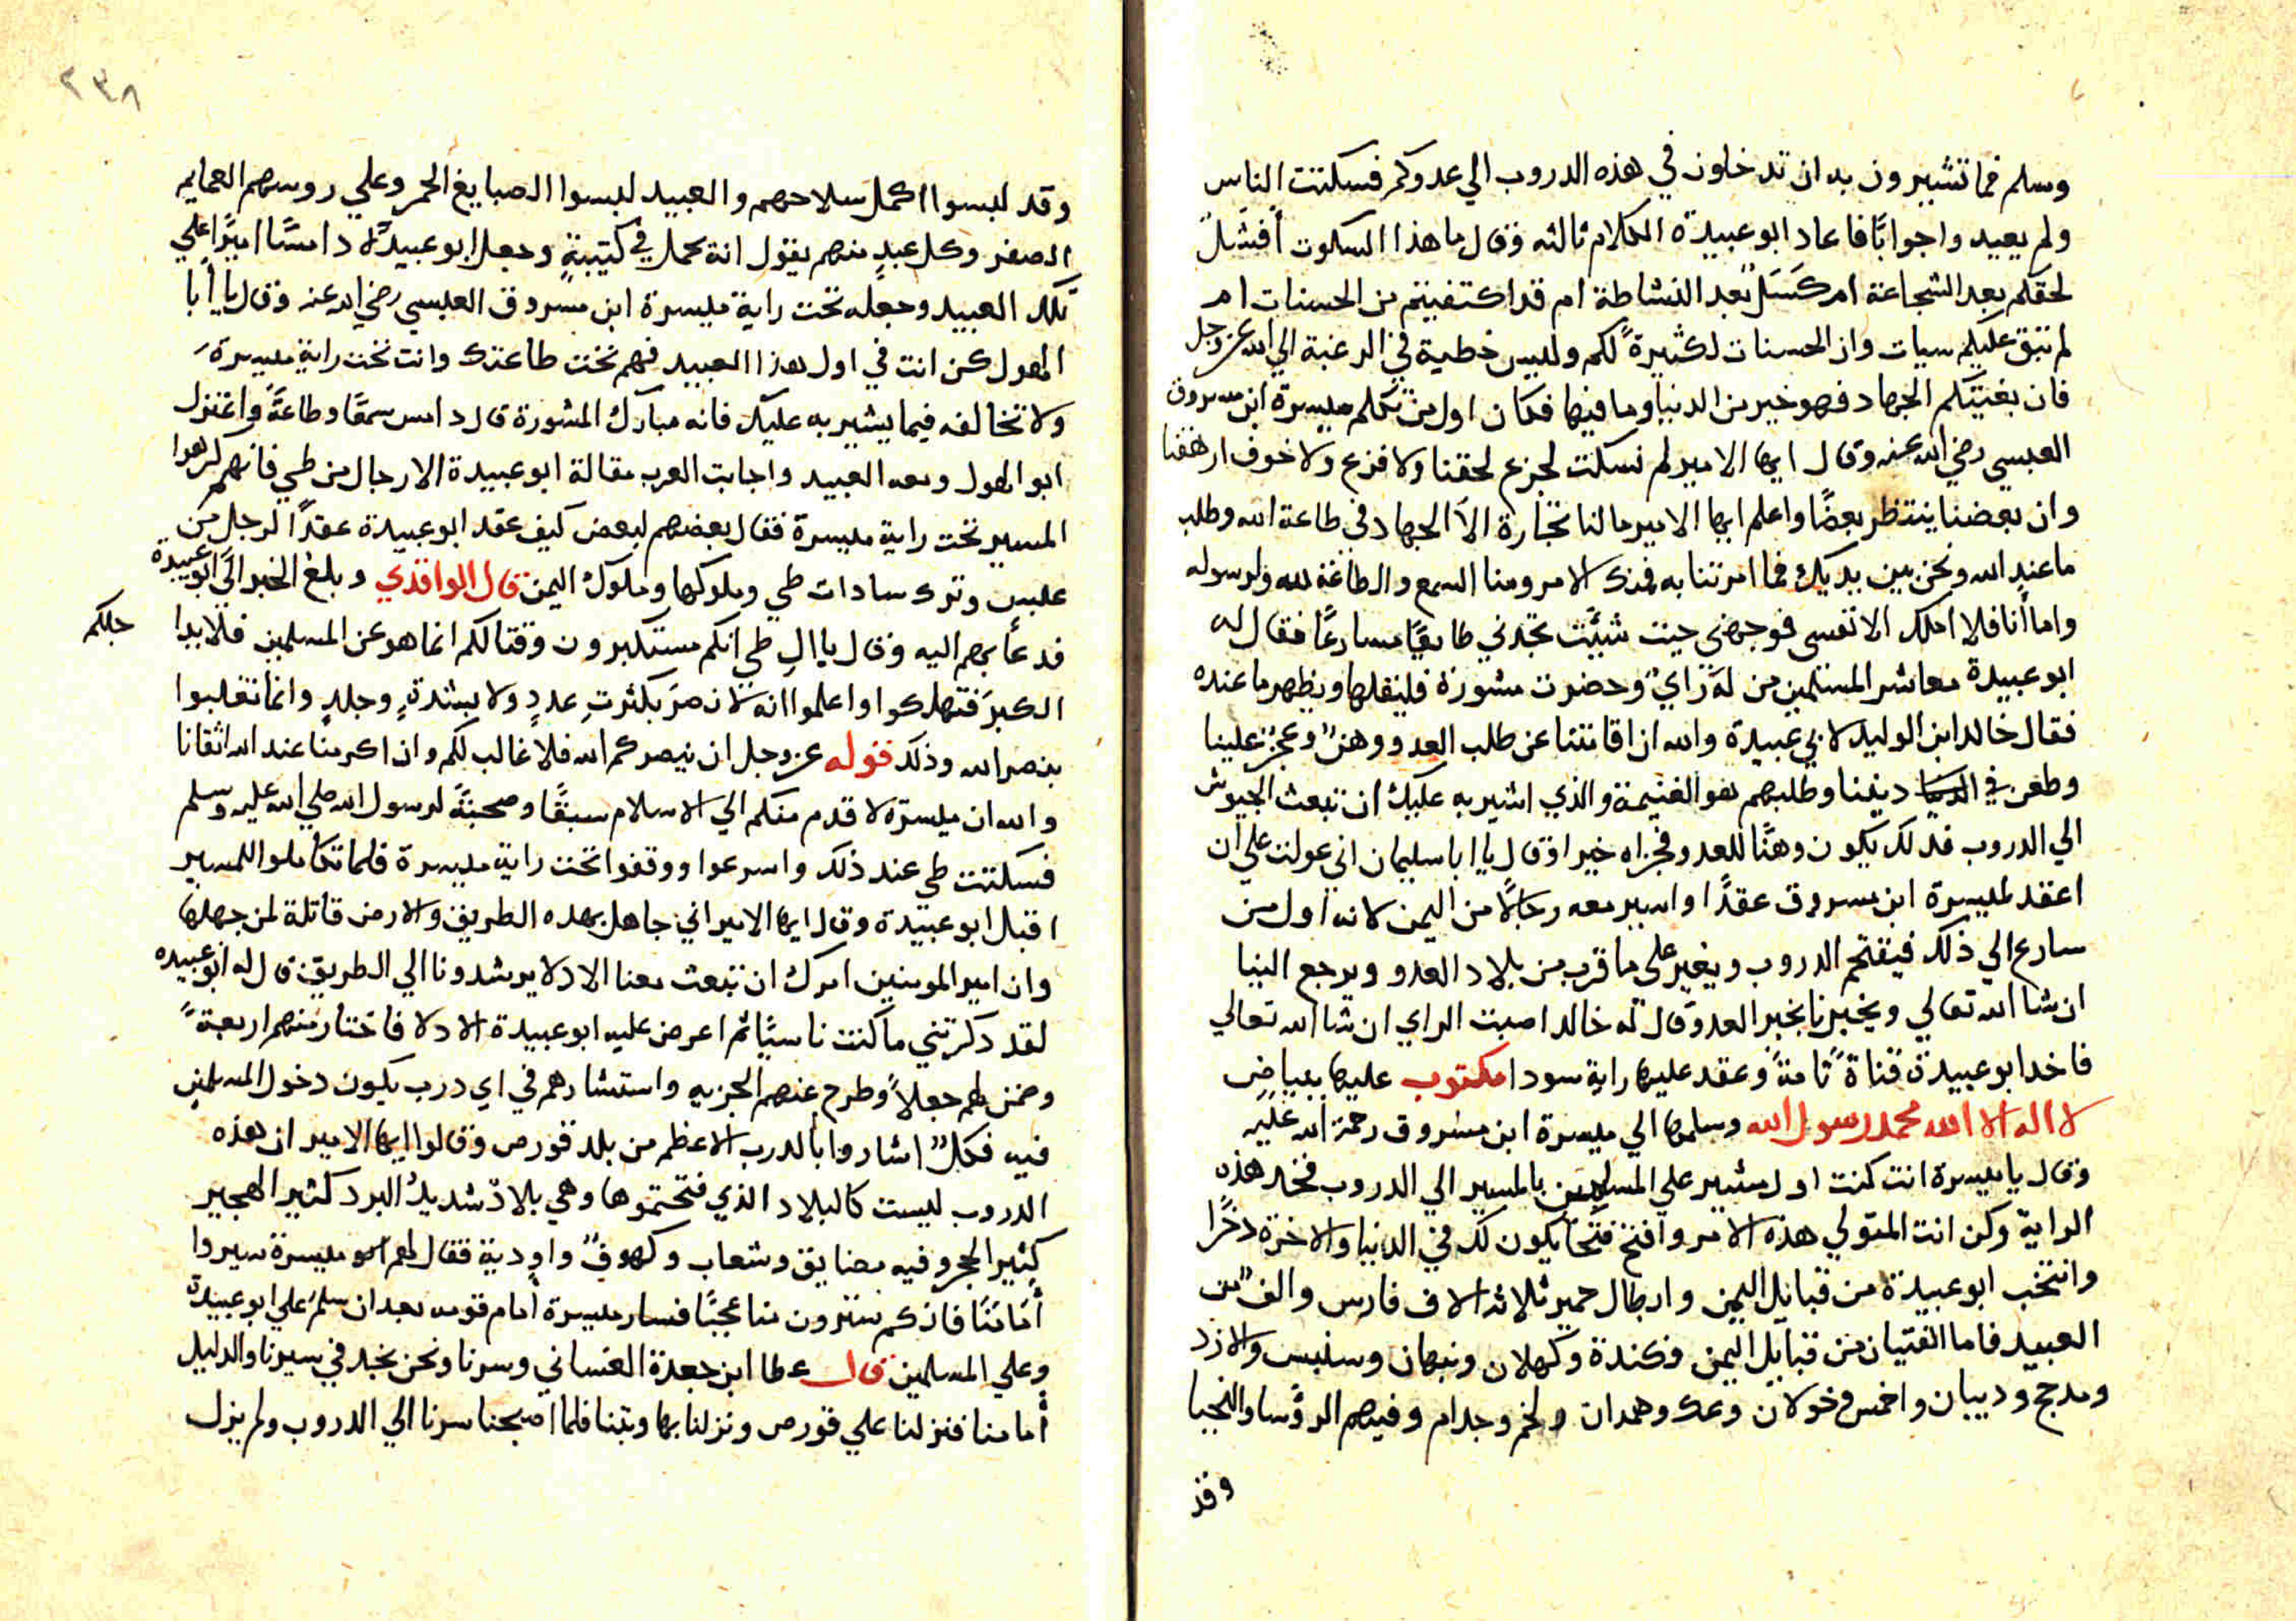 وسلم فما تشيرون به ان تدخلون في هذه الدروب الي عدوكم فسكتت الناس
ولم يعيد واجوابًا فاعاد ابو عبيدة الكلام ثالثه وقال ما هذا السكوت أفشلٌ
لحقكم بعد الشجاعة ام كسَلٌ بعد النشاطة ام قد اكتفيتم من الحسنات ام
لم تبق عليكم سيات وان الحسنات لكثيرةً لكم وليس خطية في الرغبة الي الله عز وجل
فان بغيتكم الجهاد فهو خير من الدنيا وما فيها فكان اول من تكلم ميسرة ابن مسروق
العبسي رضي الله عنه وقال ايها الامير لم نسكت لجزع لحقنا ولا فزع ولا خوف ارهقنا
وان بعضنا ينتظر بعضًا واعلم ايها الامير ما لنا تجارة الاّ الجهاد في طاعة الله وطلب
ما عند الله ونحن بين يديك فما امرتنا به فمنك الامر ومنا السمع والطاعة لله ولرسوله
واما أنا فلا املك الا نفسي فوجهني حيت شيّت تجدني طايعًا مسارعًا فقال له
ابو عبيدة معاشر المسلمين من لهَ رَايٌ وحضرت مشورة فليقلها ويظهر ما عنده
فقال خالد ابن الوليد لابي عبيدة والله ان اقامتنا عن طلب العدو وهنٌ وعجزٌ علينا
وطعن في ديننا وطلبهم هو الغنيمة والذي اشير به عليك ان تبعث الجيوش
الي الدروب فذلك يكون وهنًا للعدو فجزاه خيرا وقال يا ابا سليمان اني عولت علي ان
اعقد لميسرة ابن مسروق عقدًا واسير معه رجالًا من اليمن لانه اول من
سارع الي ذلك فيقتحم الدروب ويغير على ما قرب من بلاد العدو ويرجع الينا
ان شا الله تعالي ويخبرنا بخبر العدو قال له خالد اصبت الراي ان شا الله تعالي
فاخد ابو عبيدة قناةً تامةً وعقد عليها راية سودا مكتوب عليها ببياض
لا اله الا الله محمد رسول الله وسلمها الي ميسرة ابن مسروق رحمة الله عليه
وقال يا ميسرة انت كنت اول مشير علي المسلمين بالمسير الي الدروب فخد هذه
الراية وكن انت المتولي هذه الامر وافتح فتحًا يكون لك في الدنيا والاخرة دخرًا
وانتخب ابو عبيدة من قبايل اليمن وابطال حمير ثلاثه الاف فارس والفٌ من
العبيد فاما الفتيان من قبايل اليمن فكندة وكهلان ونبهان وسنبس والازد
ومدجح ودبيان واخمس وخولان وعك وهمدان ولخم وجدام وفيهم الروَسا والنجبا
وقد
٢٣٨
وقد لبسوا اكمل سلاحهم والعبيد لبسوا الصبايغ الحمر وعلي روسهم العمايم
الصفر وكل عبدٍ منهم يقول انه يحمل في كتيبةٍ وجعل ابو عبيدة دامسًا اميرًا علي
تلك العبيد وجعله تحت راية ميسرة ابن مسروق العبسي رضي الله عنه وقال يا أبا
الهول كن انت في اول هذا العبيد فهم تحت طاعتك وانت تحت راية ميسرة
ولا تخالفه فيما يشير به عليك فانه مبارك المشورة قال دامس سمعًا وطاعةً واعتزل
ابو الهول ومعه العبيد واجابت العرب مقالة ابو عبيدة الا رجال من طي فانهم كرهوا
المسير تحت راية ميسرة فقال بعضهم لبعض كيف عقد ابو عبيدة عقدًا لرجل من
عبس وترك سادات طي وملوكها وملوك اليمن قال الواقدي وبلغ الخبر الي ابو عبيدة
فدعا بهم اليه وقال يا ال طي انكم مستكبرون وقتالكم انما هو عن المسلمين فلا بدا
حلكم
الكبرَ فتهلكوا واعلموا انه لا نصرَ بكثرتِ عددٍ ولا بشدةٍ وجلدٍ وانما تغلبوا
بنصر الله وذلك قوله عز وجل ان ينصركم الله فلا غالب لكم وان اكرمنا عند الله اتقانا
والله ان ميسرة لاقدم منكم الي الاسلام سبقًا وصحبةً لرسول الله صلي الله عليه وسلم
فسكتت طي عند ذلك واسرعوا ووقفوا تحت راية ميسرة فلما تكاملوا للمسير
اقبل ابو عبيدة وقال ايها الامير اني جاهل بهده الطريق والارض قاتلة لمن جهلها
وان امير المومنين امرك ان تبعث معنا الادلا يرشدونا الي الطريق قال له ابو عبيده
لقد دكرتني ما كنت ناسيًا ثم اعرض عليه ابو عبيدة الادلا فاختار منهم اربعةً
وضمن لهم جعلاً وطرح عنهم الجزيه واستشارهم في اي درب يكون دخول المسلمين
فيه فكلٌ اشاروا بالدرب الاعظم من بلد قورص وقالوا ايها الامير ان هذه
الدروب ليست كالبلاد الذي فتحتموها وهي بلادٌ شديدُ البرد كثير الهجير
كثير الحجر وفيه مضايق وشعاب وكهوفٌ واودية فقال لهم ميسرة سيروا
أمَامَنَا فانكم سترون منا عجبًا فسار ميسرة أمام قومه بعد ان سلم علي ابو عبيدة
وعلي المسلمين قال عطا ابن جعدة الغساني وسرنا ونحن نجد في سيرنا والدليل
أمامنا فنزلنا علي قورص ونزلنا بها وبتنا فلما اصبحنا سرنا الي الدروب ولم يزل